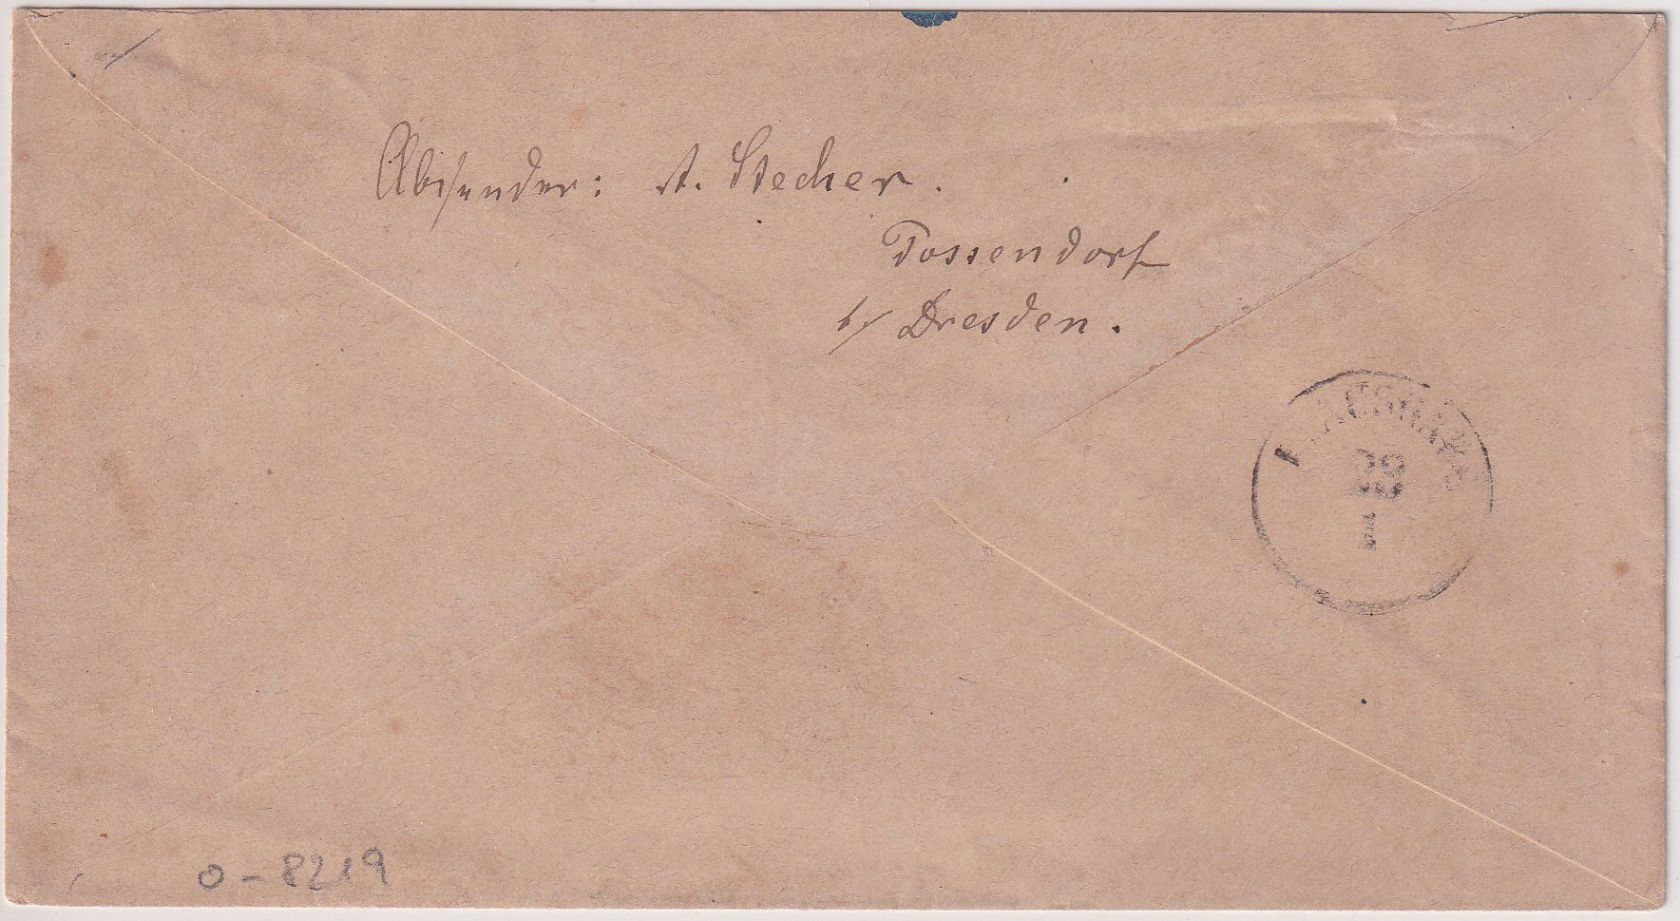 Absender: A. Stecher.
Possendorf
b/ Dresden.
I
o-8219